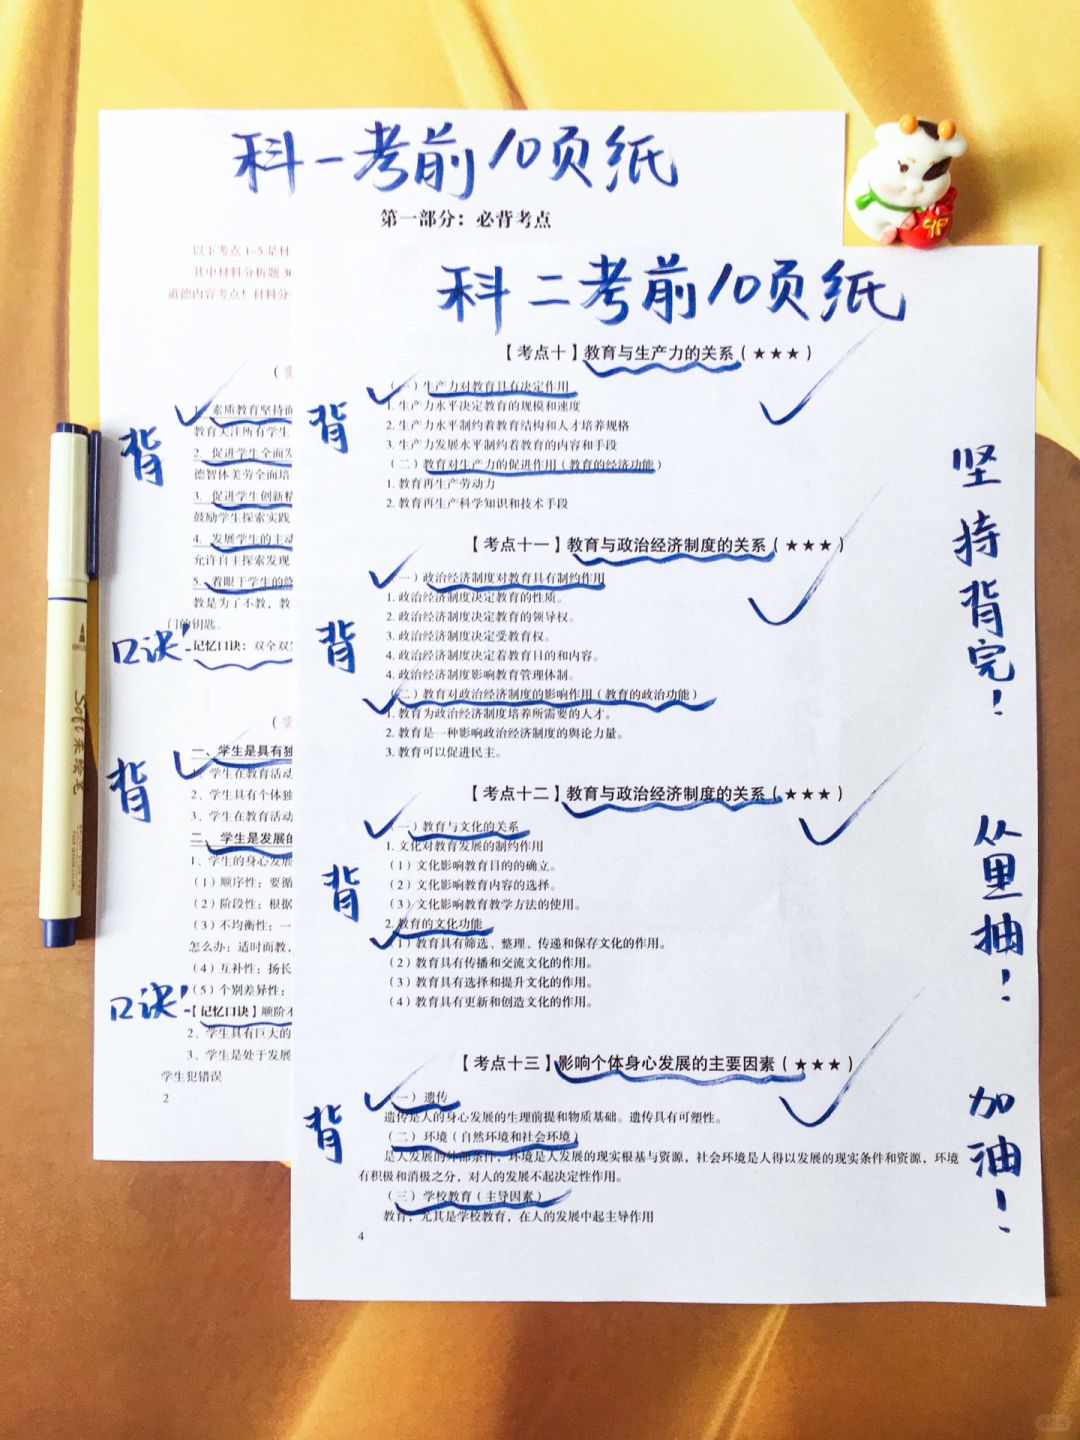 科一考前10页纸
第一部分：必背考点
以下考点 1-5 是材
其中材料分析题
道德内容考点！材料分
背
1. 素质教育坚持面
教育关注所有学生
2. 促进学生全面发
德智体美劳全面培
3. 促进学生创新精
鼓励学生探索实践
4. 发展学生的主动
允许自主探索发现
5. 着眼于学生的终
教是为了不教，教
门的钥匙。
口诀！
记忆口诀：双全双发
背
一、学生是具有独
1、学生在教育活动
2、学生具有个体独
3、学生在教育活动
二、学生是发展的
1、学生的身心发展
（1）顺序性：要循
（2）阶段性：根据
（3）不均衡性：一
怎么办：适时而教，
（4）互补性：扬长
（5）个别差异性：
口诀！
【记忆口诀】顺阶不
2、学生具有巨大的
3、学生是处于发展
学生犯错误
2
科二考前10页纸
【考点十】教育与生产力的关系（★★★）
背
（一）生产力对教育具有决定作用
1. 生产力水平决定教育的规模和速度
2. 生产力水平制约着教育结构和人才培养规格
3. 生产力发展水平制约着教育的内容和手段
（二）教育对生产力的促进作用（教育的经济功能）
1. 教育再生产劳动力
2. 教育再生产科学知识和技术手段
【考点十一】教育与政治经济制度的关系（★★★）
背
（一）政治经济制度对教育具有制约作用
1. 政治经济制度决定教育的性质。
2. 政治经济制度决定教育的领导权。
3. 政治经济制度决定受教育权。
4. 政治经济制度决定着教育目的和内容。
5. 政治经济制度影响教育管理体制。
（二）教育对政治经济制度的影响作用（教育的政治功能）
1. 教育为政治经济制度培养所需要的人才。
2. 教育是一种影响政治经济制度的舆论力量。
3. 教育可以促进民主。
【考点十二】教育与政治经济制度的关系（★★★）
背
（一）教育与文化的关系
1. 文化对教育发展的制约作用
（1）文化影响教育目的的确立。
（2）文化影响教育内容的选择。
（3）文化影响教育教学方法的使用。
2. 教育的文化功能
（1）教育具有筛选、整理、传递和保存文化的作用。
（2）教育具有传播和交流文化的作用。
（3）教育具有选择和提升文化的作用。
（4）教育具有更新和创造文化的作用。
【考点十三】影响个体身心发展的主要因素（★★★）
背
（一）遗传
遗传是人的身心发展的生理前提和物质基础。遗传具有可塑性。
（二）环境（自然环境和社会环境）
是人发展的外部条件，环境是人发展的现实根基与资源，社会环境是人得以发展的现实条件和资源，环境
有积极和消极之分，对人的发展不起决定性作用。
（三）学校教育（主导因素）
教育，尤其是学校教育，在人的发展中起主导作用
4
坚持背完！
从里抽！
加油！